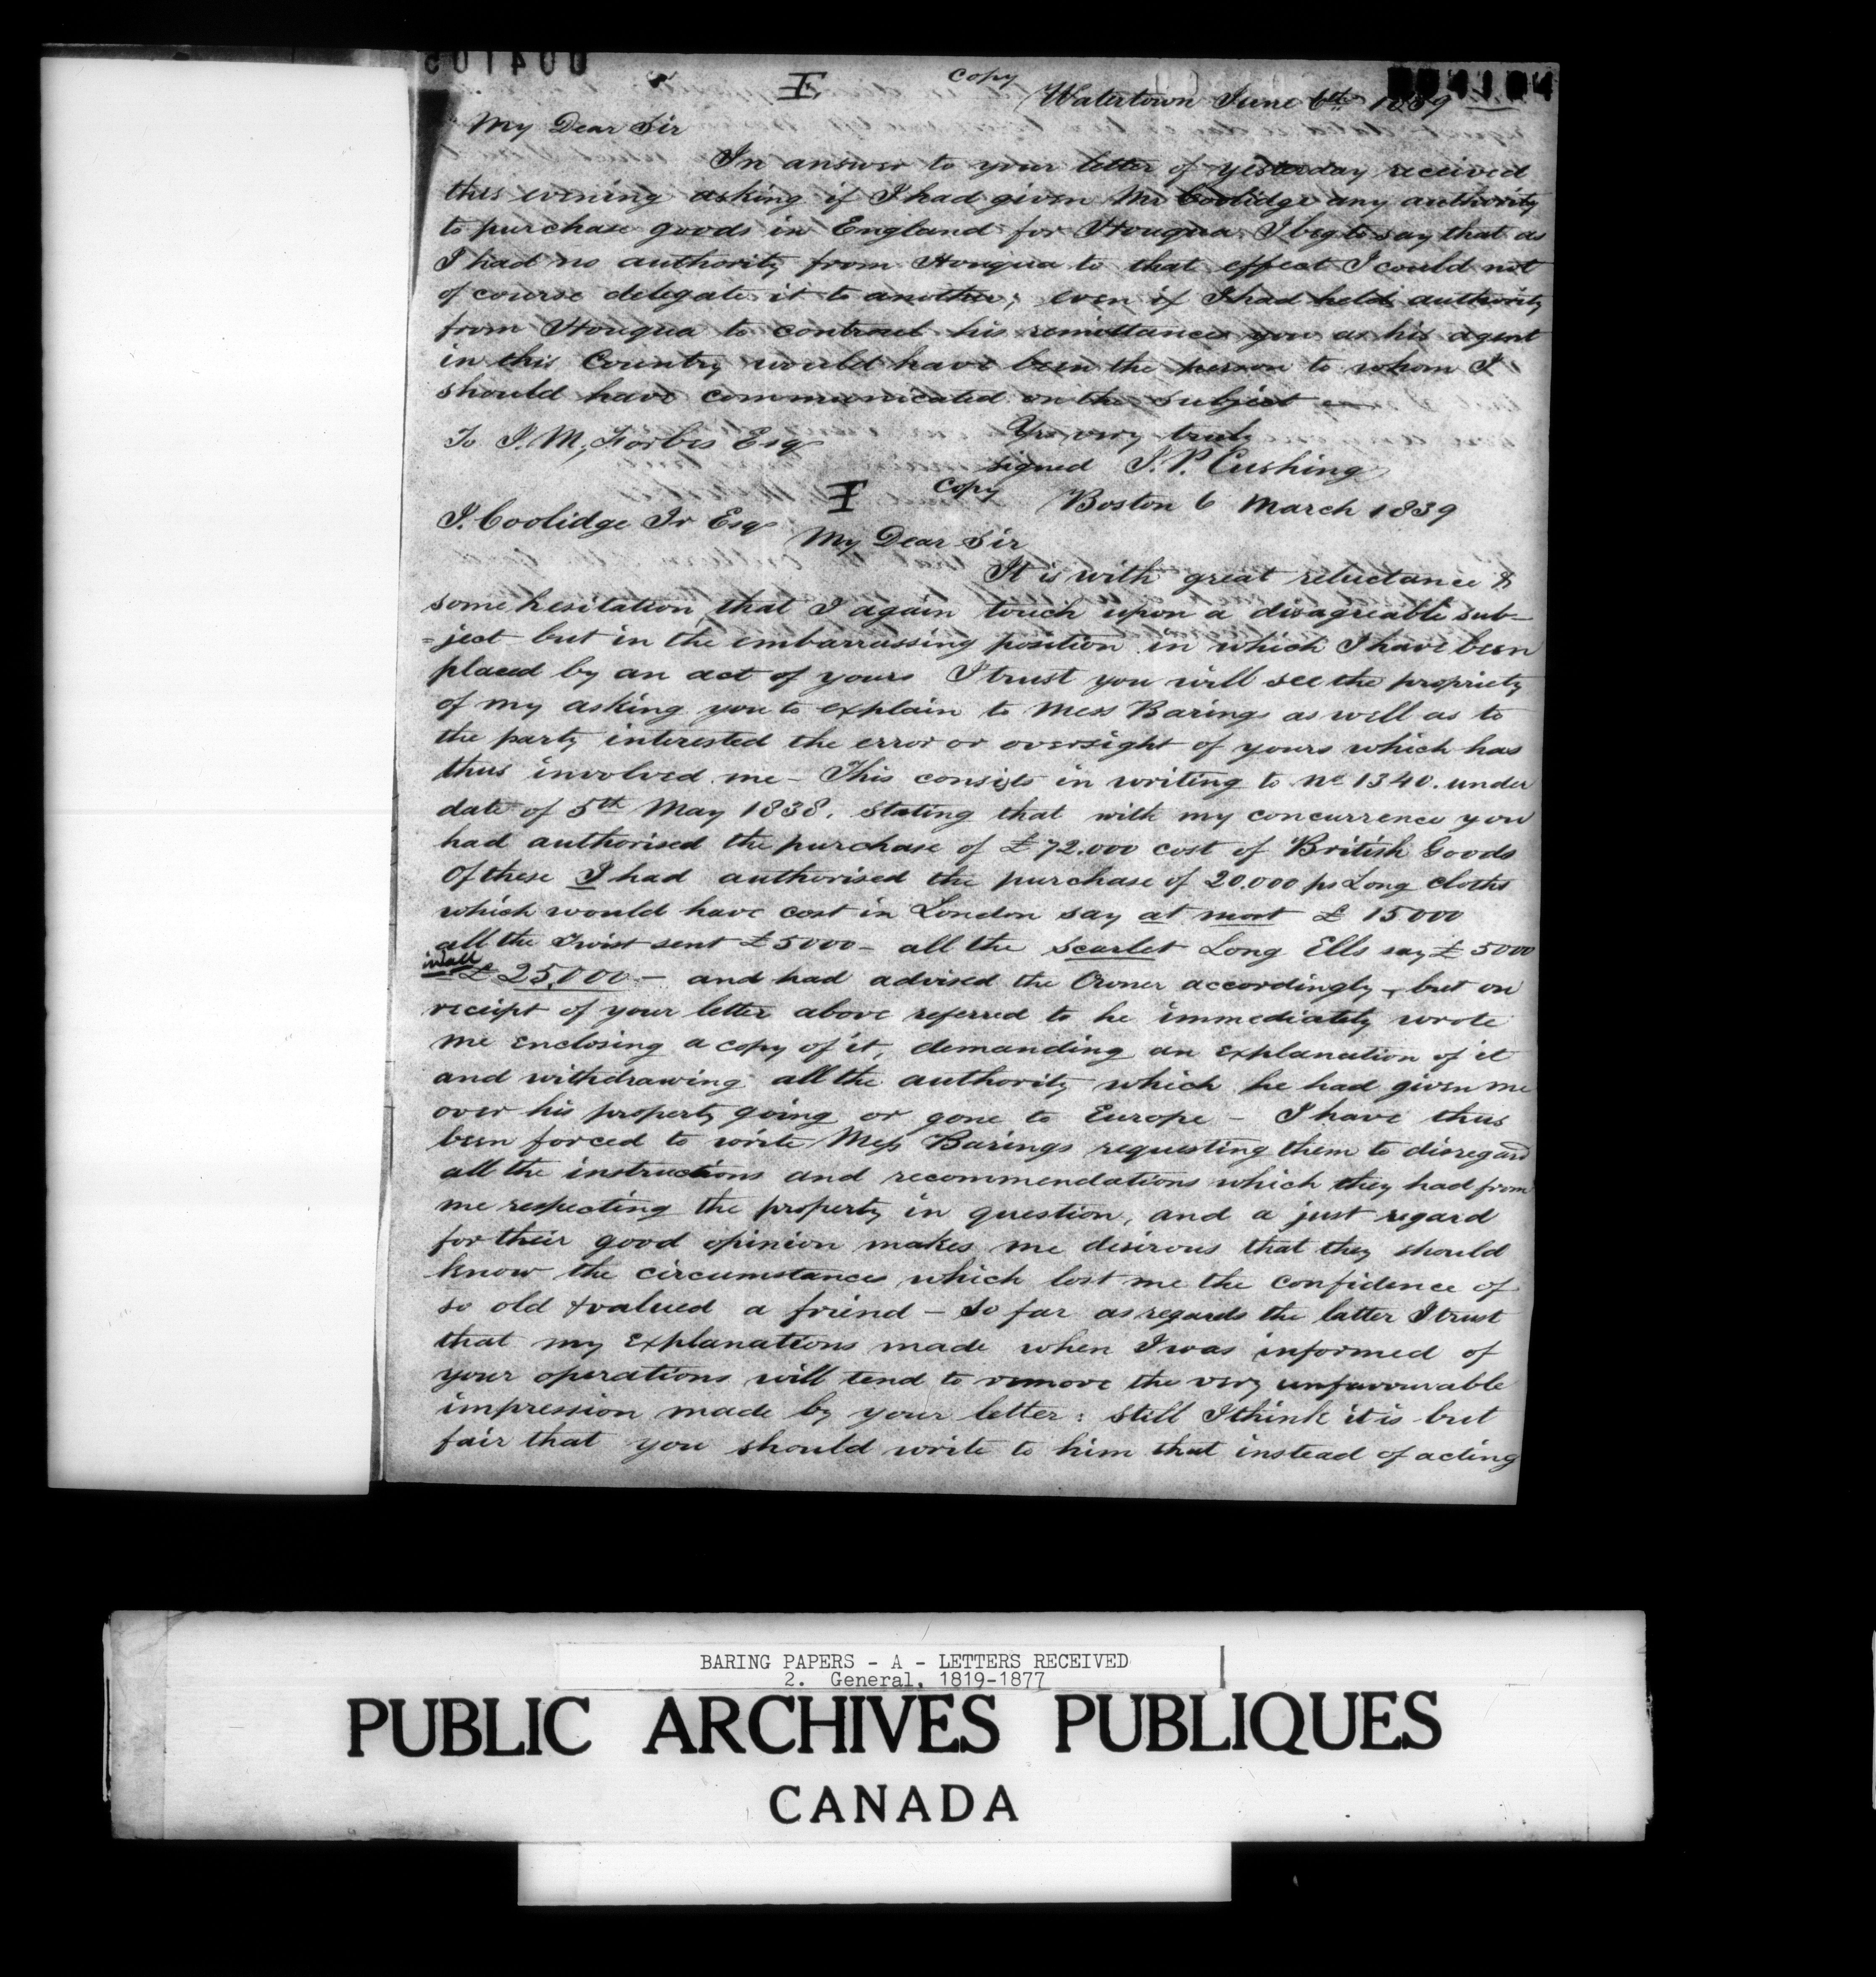 E copy
Watertown June 6th 1839
My Dear Sir
In answer to your letter of yesterday received
this evening asking if I had given Mr Coolidge any authority
to purchase goods in England for Houqua. I beg to say that as
I had no authority from Houqua to that effect I could not
of course delegate it to another; even if I had held authority
from Houqua to control his remittances you as his agent
in this Country would have been the person to whom I
should have communicated on the subject
Yrs very truly
To J. M. Forbes Esq
signed J. P. Cushing
F copy Boston 6 March 1839
J. Coolidge Jr Esq
My Dear Sir
It is with great reluctance &
some hesitation that I again touch upon a disagreable sub-
=ject but in the embarrassing position in which I have been
placed by an act of yours I trust you will see the propriety
of my asking you to explain to Mess Barings as well as to
the party interested the error or oversight of yours which has
thus involved me - This consists in writing to No 1340. under
date of 5th May 1838. stating that with my concurrence you
had authorised the purchase of £72.000 cost of British Goods
Of these I had authorised the purchase of 20.000 ps Long cloths
which would have cost in London say at most £ 15000
all the Twist sent £5000 - all the scarlet Long Ells say £ 5000
in all £ 25,000 - and had advised the Owner accordingly, but on
receipt of your letter above referred to he immediately wrote
me enclosing a copy of it, demanding an explanation of it
and withdrawing all the authority which he had given me
over his property going or gone to Europe - I have thus
been forced to write Mess Barings requesting them to disregard
all the instructions and recommendations which they had from
me respecting the property in question, and a just regard
for their good opinion makes me desirous that they should
know the circumstances which lost me the confidence of
so old & valued a friend - So far as regards the latter I trust
that my explanations made when I was informed of
your operations will tend to remove the very unfavourable
impression made by your letter: still I think it is but
fair that you should write to him that instead of acting
BARING PAPERS - A - LETTERS RECEIVED
2. General, 1819-1877
PUBLIC ARCHIVES PUBLIQUES
CANADA